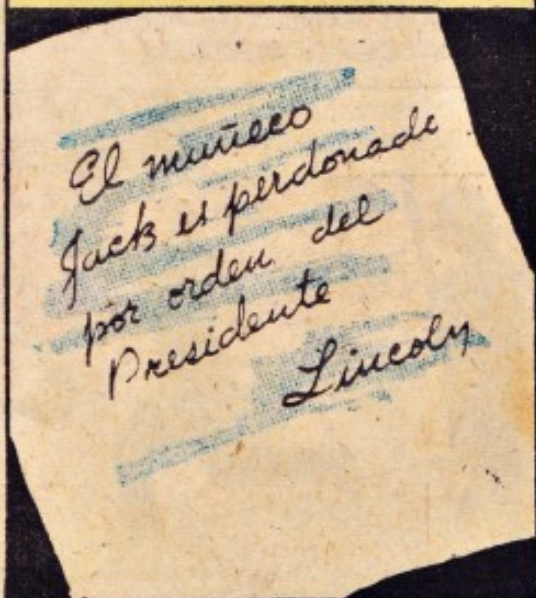 El muñeco
Jack es perdonado
por orden del
Presidente
Lincoln